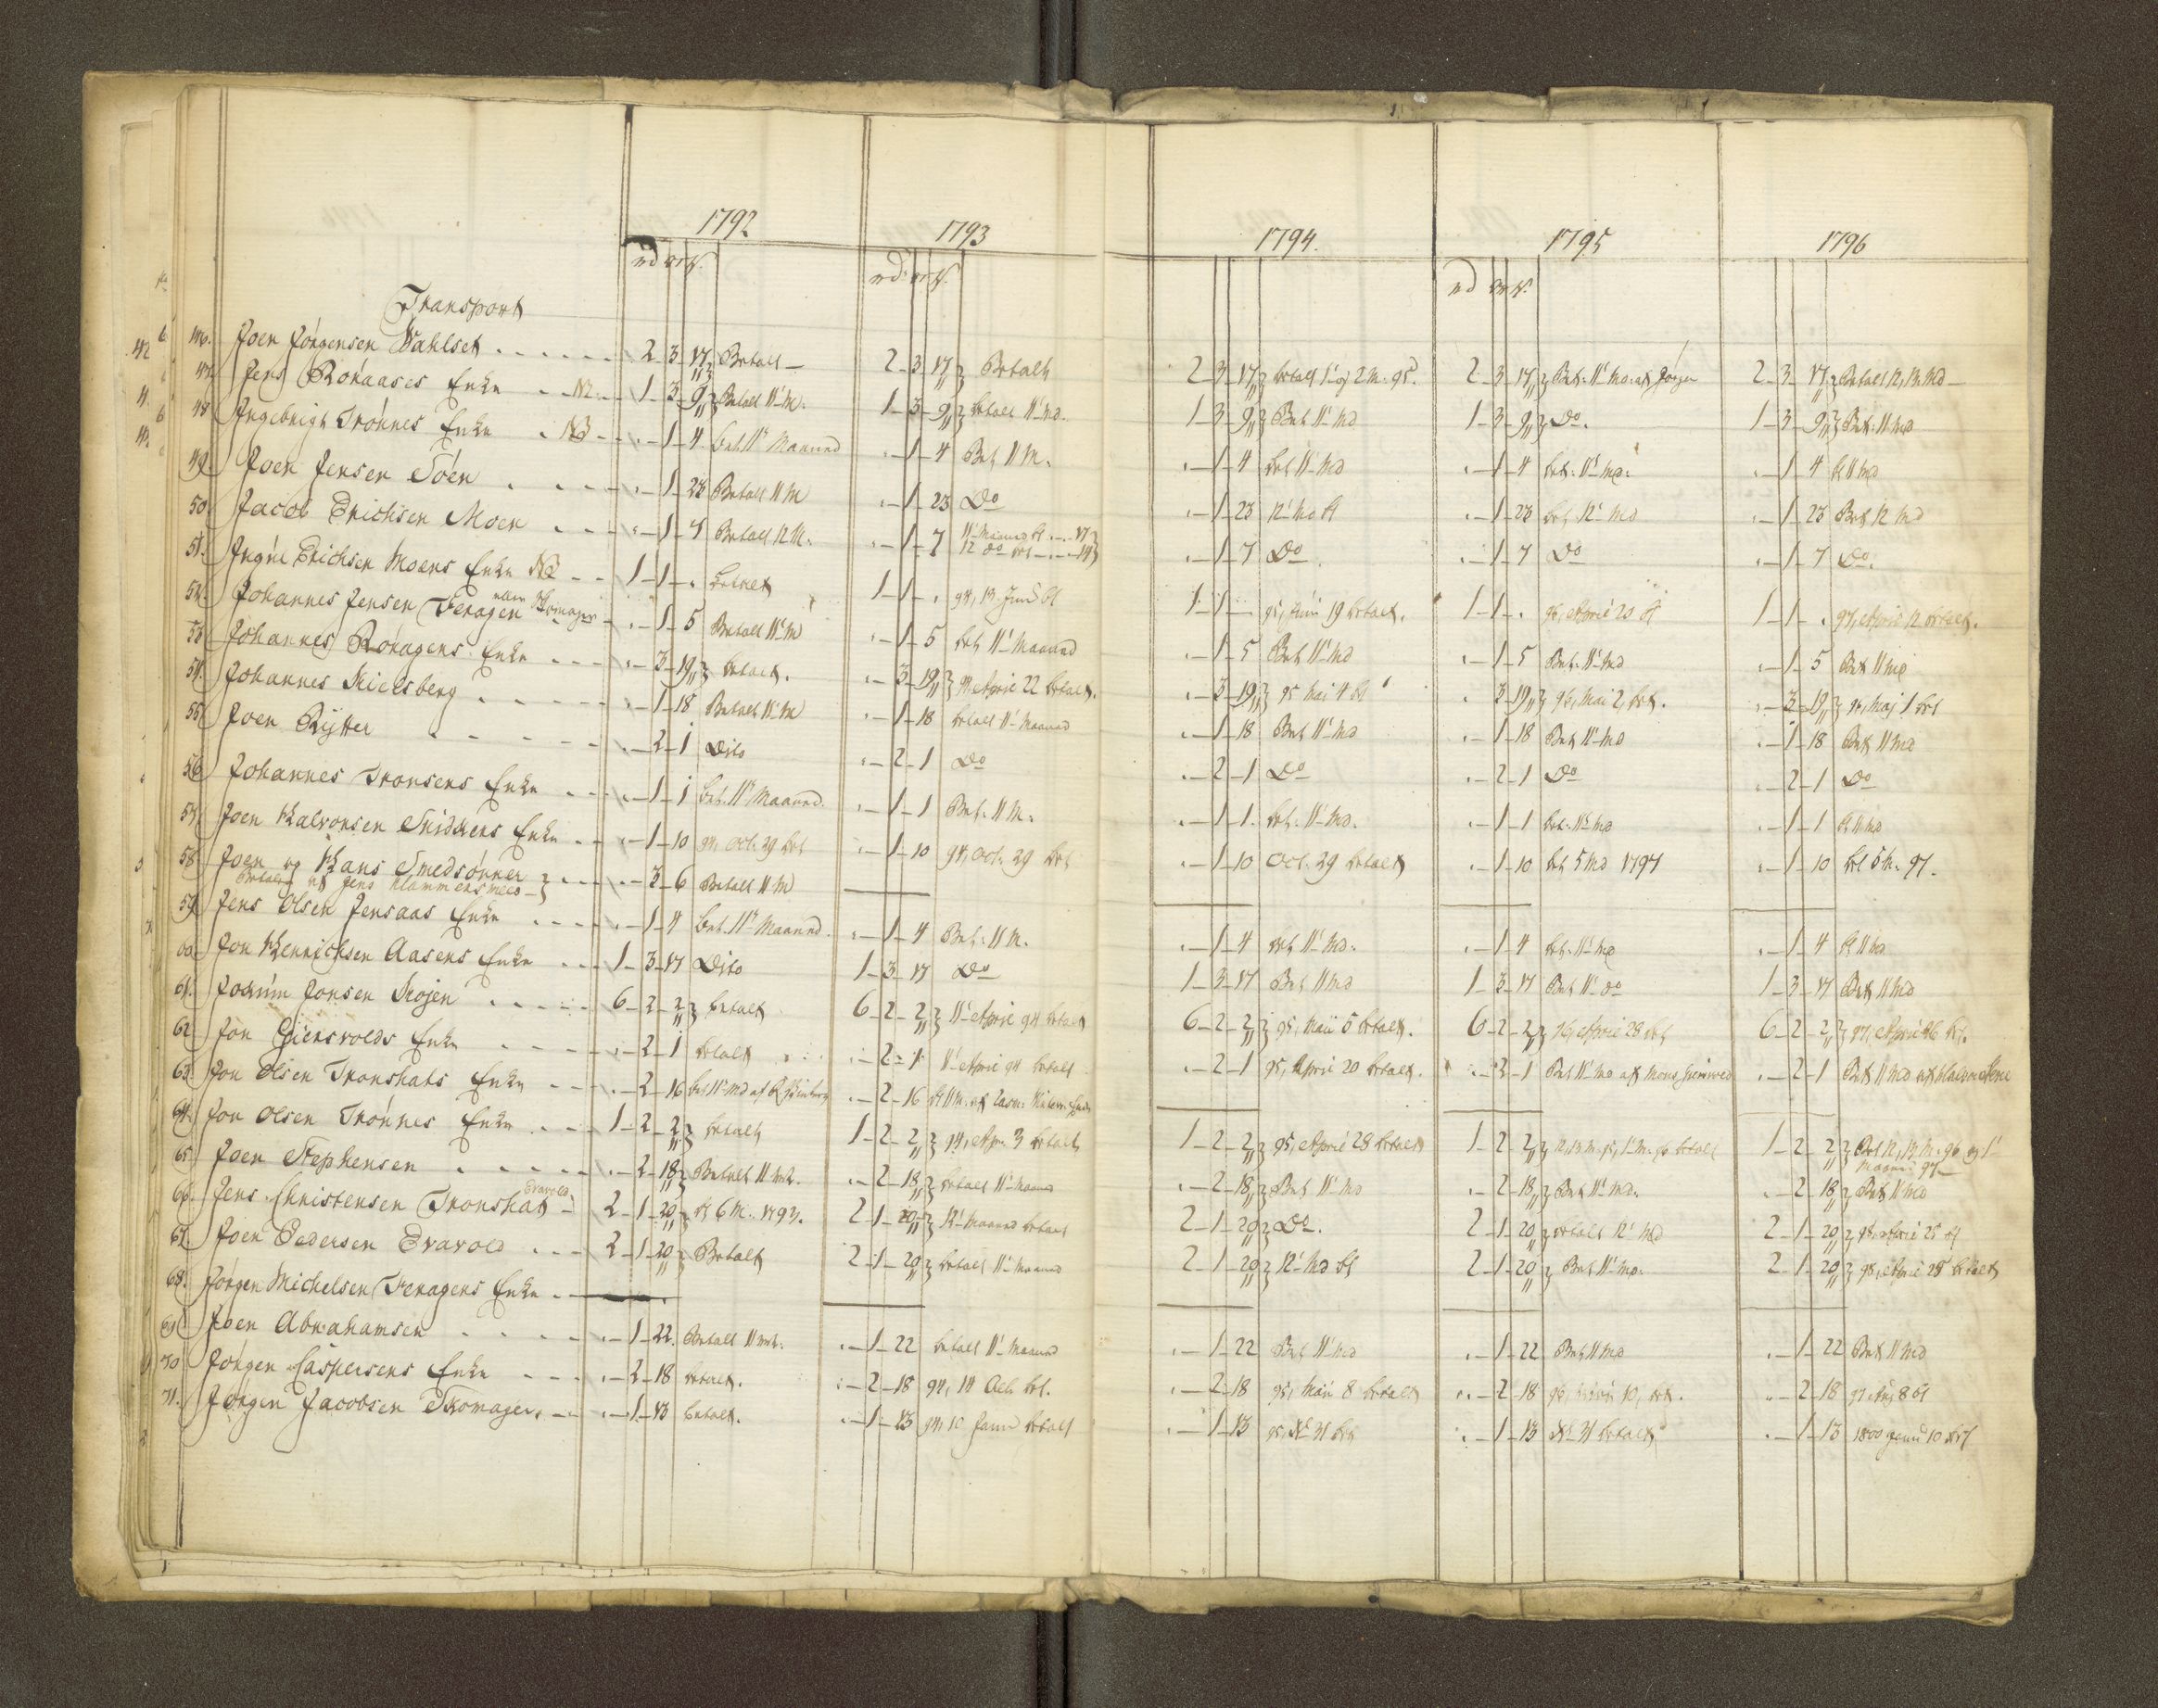 1792 1793 1794. 1795 1796
rd ort s. rd ort s. rd ort s.
Transport
46. Joen Jörgensen Wahlset 2-3-17 Betalt 2-3-17 Betalt 2-3-17 betalt 1' og 2 M. 95. 2-3-17 Bet: 11' Md. af Jörgen 2-3-17 Betalt 12, 13 Md
47. Jens Roraases Enke NB. 1-3-9 Betalt 11' M. 1-3-9 betalt 11' Md. 1-3-9 Bet 11' Md 1-3-9 Do. 1-3-9 Bet: 11 Md
48 Ingebrigt Trönnes Enke NB 1-4 bet. 11' Maaned 1-4 Bet 11 M. 1-4 bet 11' Md 1-4 bet: 11' Md: 1-4 bt 11 Md
49 Joen Jensen Töen 1-23 Betalt 11 M 1-23 Do 1-23 12' Md bt 1-23 bet 12' Md 1-23 Bet 12 Md
50. Jacob Erichsen Moen 1-7 Betalt 12 M. 1-7 11' Maaned bt 17 12 do bet 14 1-7 Do 1-7 Do 1-7 Do.
51. Ingri Erichsen Moens Enke NB 1-1- betalt 1-1- 94, 13 Juni bt 1-1- 95, Juni 19 betalt. 1-1- 96, April 20 bt 1-1- 97, April 12 betalt.
52. Johannes Jensen Feragen eller Skomager 1-5 Betalt 11' M 1-5 bet 11' Maaned 1-5 Bet 11' Md 1-5 Bet. 11' Md 1-5 Bet 11 Md
53 Johannes Roragens Enke 3-19 betalt. 3-19 94, April 22 betalt. 3-19 95 Mai 4 bt 3-19 96, Mai 2, bet. 3-19 Maj 1 bet
54. Johannes Kielsberg 1-18 Betalt 11' M 1-18 betalt 11' Maaned 1-18 Bet 11' Md 1-18 Bet 11' Md 1-18 Bet 11 Md
55 Joen Rÿtter 2-1 Dito 2-1 Do 2-1 Do 2-1 Do 2-1 Do
56 Johannes Tronsens Enke 1-1 bet. 11' Maaned. 1-1 Bet. 11 M. 1-1 bet. 11' Md. 1-1 bet. 11' Md 1-1 bt 11 Md
57. Joen Halvorsen Skidsens Enke 1-10 94 Oct. 29 bet 1-10 94, Oct. 29 bet 1-10 Oct. 29 betalt 1-10 bet 5 Md 1797 1-10 bet 5 M. 97.
58 Joen og Hans Smedsönner 3-6 Betalt 11 M
betales af Jens Klemmetsmeed
59 Jens Olsen Jensaas Enke 1-4 bet. 11' Maaned. 1-4 Bet. 11 M. 1-4 bet 11' Md. 1-4 bet. 11' Md 1-4 bt 11 Md
60. Jon Henrichsen Aasens Enke 1-3-17 Dito 1-3-17 Do 1-3-17 Bet 11 Md 1-3-17 Bet 11' do 1-3-17 Bet 11 Md
61. Jochum Jonsen Kojen 6-2-2 betalt 6-2-2 11' April 94 betalt 6-2-2 95, Maii 5 betalt. 6-2-2 96, April 28 bet 6-2-2 97, April 26 bt.
62 Jon Giersvolds Enke 2-1 betalt 2-1 11' April 94 betalt 2-1 95, April 20 betalt. 2-1 Bet 11' Md af Mons 2-1 Bet 11 Md af
63. Jon Olsen Tronshats Enke 2-16 bet 11' Md af 2-16 bt 11 M. af
64. Jon Olsen Trönnes Enke 1-2-2 betalt 1-2-2 94, Apr. 3 betalt 1-2-2 95 April 28 betalt 1-2-2 12, 13 M. 95, 1' M. 96 betalt 1-2-2 Bet 12, 13 M. 96 og 1' Maaned 97
65. Joen Stephensen 2-18 Betalt 11 Md. 2-18 betalt 11' Maaned 2-18 Bet 11' Md 2-18 Bet 11' Md. 2-18 Bet 11' Md
66. Jens Christensen Tronshat Evavold 2-1-20 bt 6 M. 1793. 2-1-20 12' Maaned betalt 2-1-20 Do. 2-1-20 betalt 12' Md 2-1-20 April 25 bt
67. Joen Pedersen Evavold 2-1-20 Betalt 2-1-20 betalt 11' Maaned 2-1-20 12' Md bt 2-1-20 Bet 11' Md. 2-1-20 98, April 25 betalt
68. Jörgen Michelsen Feragens Enke
69 Joen Abrahamsen 1-22. Betalt 11 Md. 1-22 betalt 11' Maaned 1-22 Bet 11' Md 1-22 Bet 11 Md 1-22 Bet 11 Md
70 Jörgen Caspersens Enke 2-18 betalt. 2-18 94, 14 Oct. bt. 2-18 95, Maii 8 betalt 2-18 96, 10, bet. 2-18 97 8 bt
71. Jörgen Jacobsen Skomager 1-13 betalt. 1-13 94, 10 Janu betalt 1-13 95. 31 bet 1-13 31 betalt 1-13 1800 Janu 10 bet